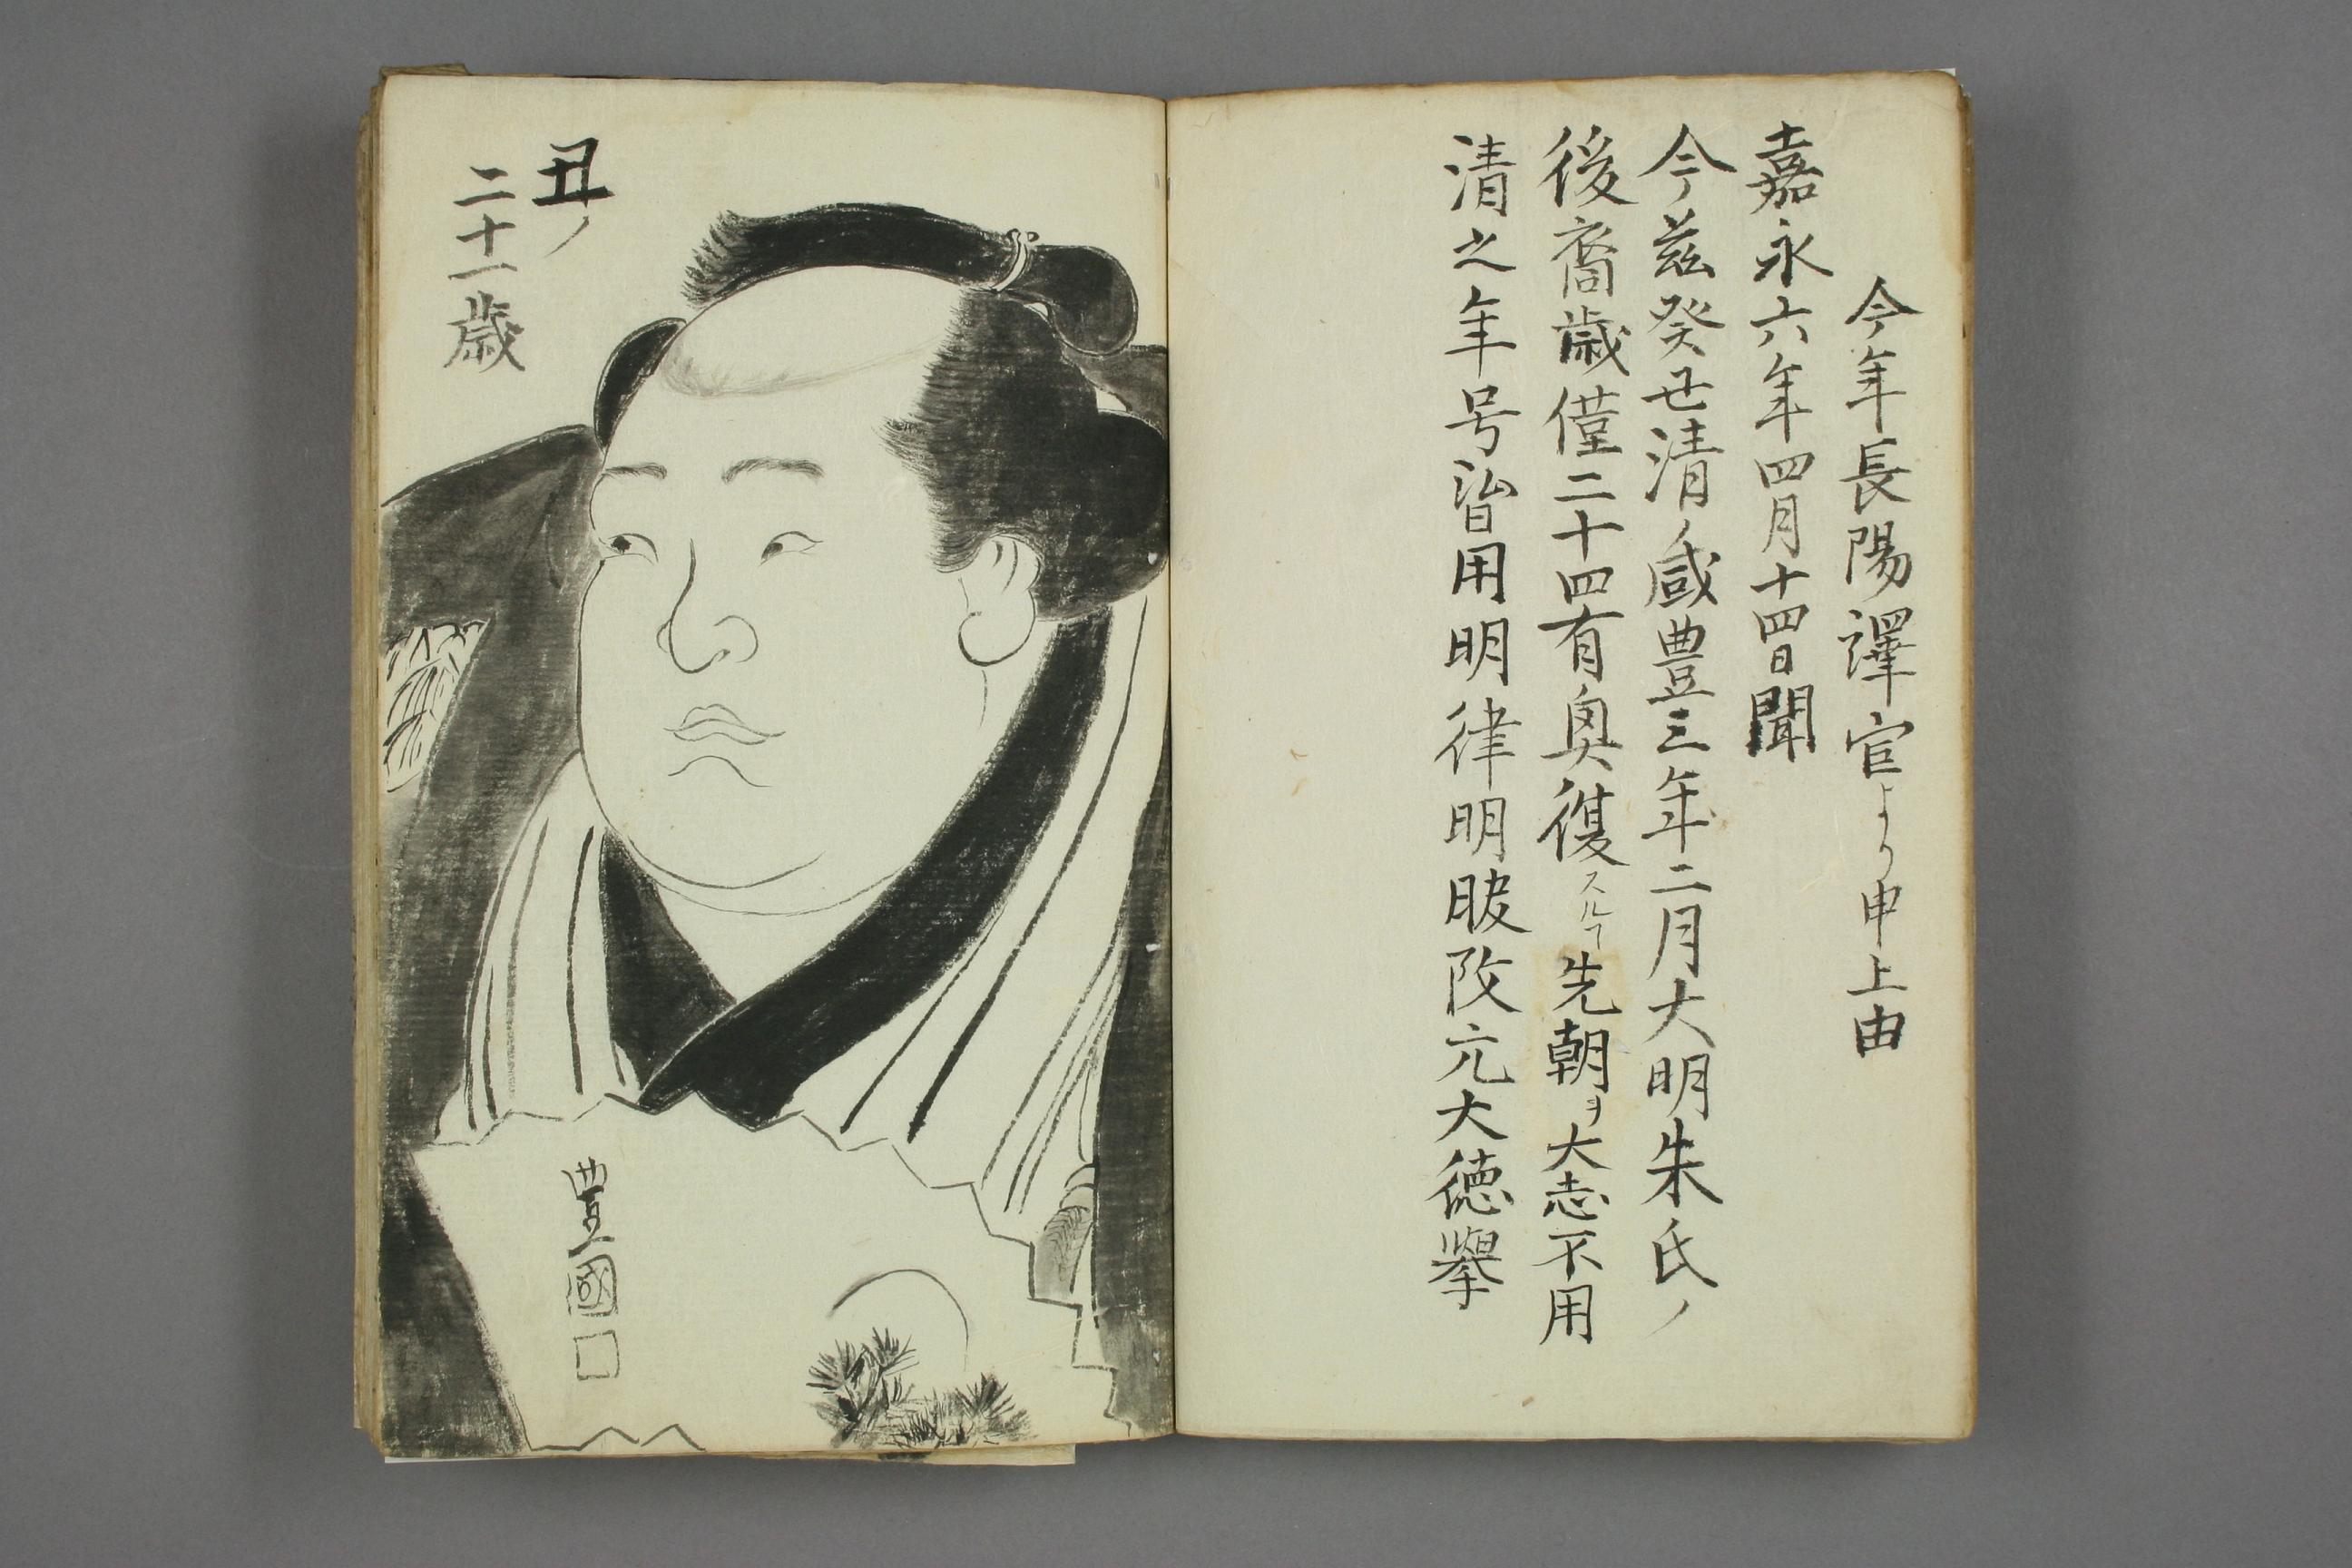 今年長陽譯官より申上由
嘉永六年四月十四日聞
今茲癸丑清ノ咸豊三年二月大明朱氏ノ
後裔歳僅二十四有奥復スルヿ先朝ヲ大志不用
清之年号皆用明律明服改元大徳挙
丑ノ
二十一歳
豊國